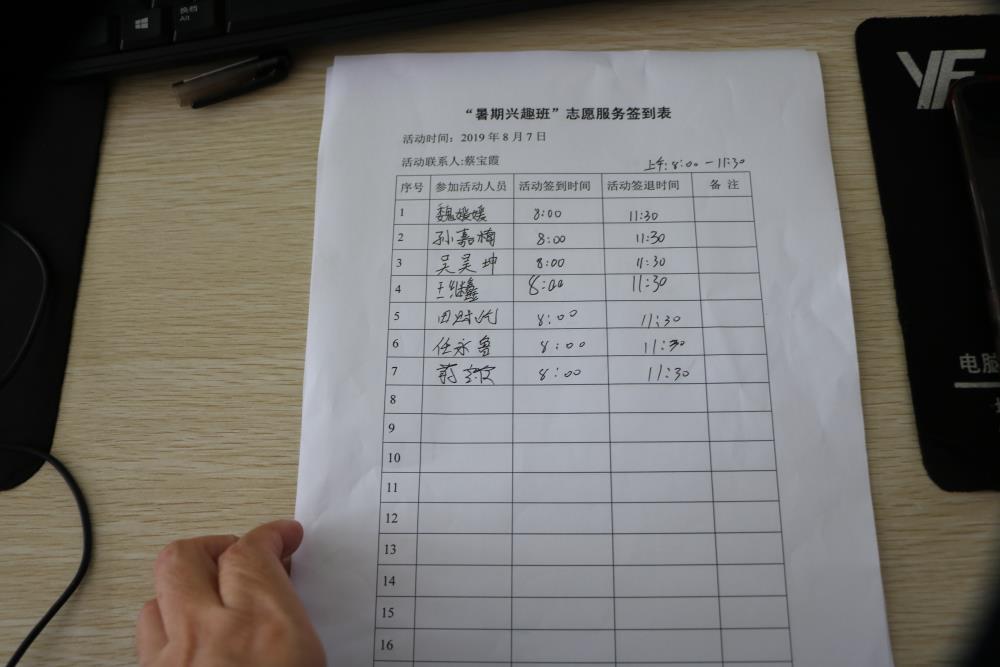 换档
Alt
YF
电脑
“暑期兴趣班”志愿服务签到表
活动时间：2019 年 8 月 7 日
活动联系人:蔡宝霞
上午：8:00 — 11:30
序号 参加活动人员 活动签到时间 活动签退时间 备 注
1 魏媛媛 8:00 11:30
2 孙嘉楠 8:00 11:30
3 吴昊坤 8:00 11:30
4 8:00 11:30
5 8:00 11:30
6 任永鲁 8:00 11:30
7 8:00 11:30
8
9
10
11
12
13
14
15
16